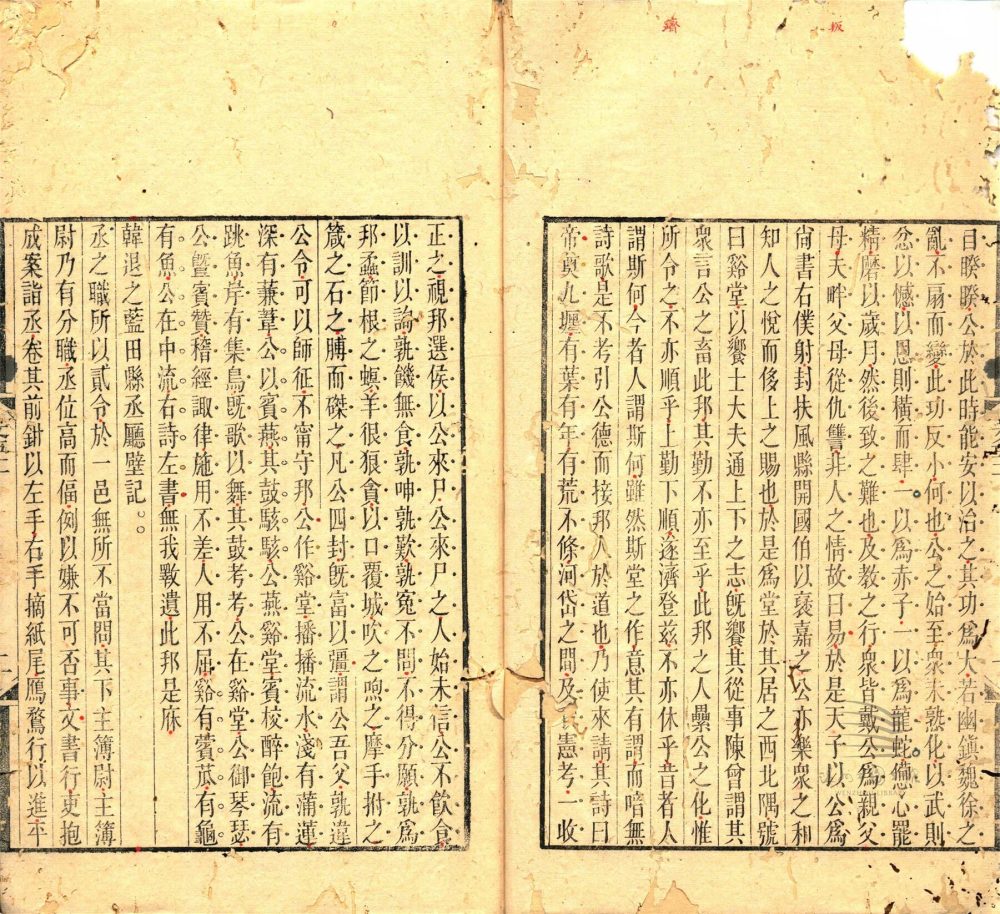 目睽睽公於此時能安以治之其功爲大若幽鎮魏徐之
亂不扇而變此功反小何也公之始至衆未熟化以武則
忿以憾以恩則橫而肆一以爲赤子一以爲龍蛇憊心罷
精磨以歲月然後致之難也及教之行衆皆戴公爲親父
母夫畔父母從仇讐非人之情故曰易於是天子以公爲
尙書右僕射封扶風縣開國伯以褒嘉之公亦樂衆之和
知人之悅而侈上之賜也於是爲堂於其居之西北隅號
曰谿堂以饗士大夫通上下之志旣饗其從事陳曾謂其
衆言公之畜此邦其勤不亦至乎此邦之人纍公之化惟
所令之不亦順乎上勤下順遂濟登兹不亦休乎昔者人
謂斯何今者人謂斯何雖然斯堂之作意其有謂而喑無
詩歌是不考引公德而接邦人於道也乃使來請其詩曰
帝奠九壥有葉有年有荒不條河岱之間及憲考一收
正之視邦選侯以公來尸公來尸之人始未信公不飲食
以訓以諭孰饑無食孰呻孰歎孰寃不問不得分願孰爲
邦蟊節根之螟羊很狼貪以口覆城吹之喣之摩手拊之
箴之石之膊而磔之凡公四封旣富以彊謂公吾父孰違
公令可以師征不甯守邦公作谿堂播播流水淺有蒲蓮
深有蒹葦公以賓燕其鼓駭駭公燕谿堂賓校醉飽流有
跳魚岸有集鳥旣歌以舞其鼓考考公在谿堂公御琴瑟
公曁賓贊稽經諏律施用不差人用不屈谿有薲苽有龜
有魚公在中流右詩左書無我斁遺此邦是庥
韓退之藍田縣丞廳壁記
丞之職所以貳令於一邑無所不當問其下主簿尉主簿
尉乃有分職丞位高而偪例以嫌不可否事文書行吏抱
成案詣丞卷其前鉗以左手右手摘紙尾鴈鶩行以進平